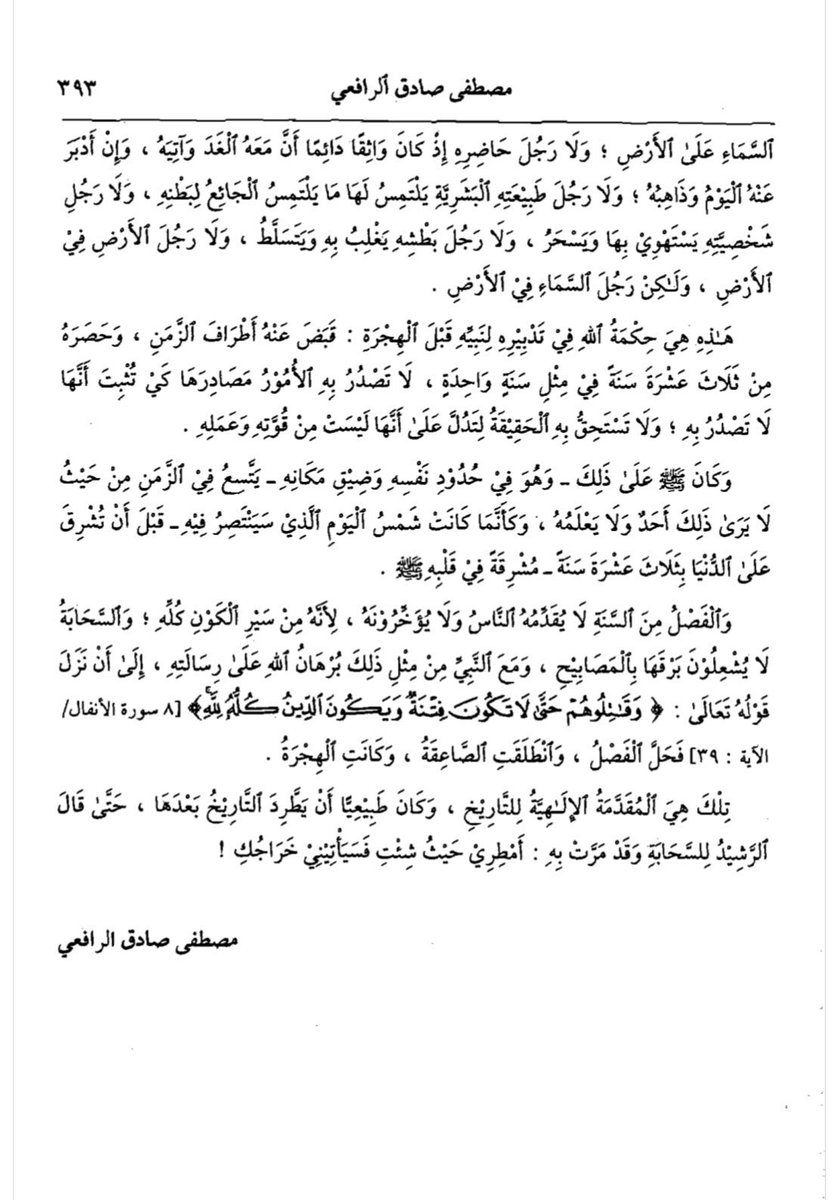 مصطفى صادق ٱلرافعي ٣٩٣
ٱلسَّمَاءِ عَلَىٰ ٱلأَرْضِ ؛ وَلَا رَجُلَ حَاضِرِهِ إِذْ كَانَ وَاثِقًا دَائِمًا أَنَّ مَعَهُ ٱلْغَدَ وَآتِيَهُ ، وَإِنْ أَدْبَرَ
عَنْهُ ٱلْيَوْمُ وَذَاهِبُهُ ؛ وَلَا رَجُلَ طَبِيْعَتِهِ ٱلْبَشَرِيَّةِ يَلْتَمِسُ لَهَا مَا يَلْتَمِسُ ٱلْجَائِعُ لِبَطْنِهِ ، وَلَا رَجُلِ
شَخْصِيَّتِهِ يَسْتَهْوِيْ بِهَا وَيَسْحَرُ ، وَلَا رَجُلَ بَطْشِهِ يَغْلِبُ بِهِ وَيَتَسَلَّطُ ، وَلَا رَجُلَ ٱلأَرْضِ فِيْ
ٱلأَرْضِ ، وَلَـٰكِنْ رَجُلَ ٱلسَّمَاءِ فِيْ ٱلأَرْضِ .
هَـٰذِهِ هِيَ حِكْمَةُ ٱللهِ فِيْ تَدْبِيْرِهِ لِنَبِيِّهِ قَبْلَ ٱلْهِجْرَةِ : قَبَضَ عَنْهُ أَطْرَافَ ٱلزَّمَنِ ، وَحَصَرَهُ
مِنْ ثَلَاثَ عَشْرَةَ سَنَةً فِيْ مِثْلِ سَنَةٍ وَاحِدَةٍ ، لَا تَصْدُرُ بِهِ ٱلأُمُوْرُ مَصَادِرَهَا كَيْ تُثْبِتَ أَنَّهَا
لَا تَصْدُرُ بِهِ ؛ وَلَا تَسْتَحِقُّ بِهِ ٱلْحَقِيْقَةُ لِتَدُلَّ عَلَىٰ أَنَّهَا لَيْسَتْ مِنْ قُوَّتِهِ وَعَمَلِهِ .
وَكَانَ ﷺ عَلَىٰ ذَلِكَ ـ وَهُوَ فِيْ حُدُوْدِ نَفْسِهِ وَضِيْقِ مَكَانِهِ ـ يَتَّسِعُ فِيْ ٱلزَّمَنِ مِنْ حَيْثُ
لَا يَرَىٰ ذَلِكَ أَحَدٌ وَلَا يَعْلَمُهُ ، وَكَأَنَّمَا كَانَتْ شَمْسُ ٱلْيَوْمِ ٱلَّذِيْ سَيَنْتَصِرُ فِيْهِ ـ قَبْلَ أَنْ تُشْرِقَ
عَلَىٰ ٱلدُّنْيَا بِثَلَاثَ عَشْرَةَ سَنَةً ـ مُشْرِقَةً فِيْ قَلْبِهِ ﷺ .
وَٱلْفَصْلُ مِنَ ٱلسَّنَةِ لَا يُقَدِّمُهُ ٱلنَّاسُ وَلَا يُؤَخِّرُوْنَهُ ، لِأَنَّهُ مِنْ سَيْرِ ٱلْكَوْنِ كُلِّهِ ؛ وَٱلسَّحَابَةُ
لَا يُشْعِلُوْنَ بَرْقَهَا بِٱلْمَصَابِيْحِ ، وَمَعَ ٱلنَّبِيِّ مِنْ مِثْلِ ذَلِكَ بُرْهَانُ ٱللهِ عَلَىٰ رِسَالَتِهِ ، إِلَىٰ أَنْ نَزَلَ
قَوْلُهُ تَعَالَىٰ : ﴿ وَقَـٰتِلُوهُمْ حَتَّىٰ لَا تَكُونَ فِتْنَةٌ وَيَكُونَ ٱلدِّينُ كُلُّهُ لِلَّهِ ﴾ [٨ سورة الأنفال/
الآية : ٣٩] فَحَلَّ ٱلْفَصْلُ ، وَٱنْطَلَقَتِ ٱلصَّاعِقَةُ ، وَكَانَتِ ٱلْهِجْرَةُ .
تِلْكَ هِيَ ٱلْمُقَدِّمَةُ ٱلإِلَـٰهِيَّةُ لِلتَّارِيْخِ ، وَكَانَ طَبِيْعِيًّا أَنْ يَطَّرِدَ ٱلتَّارِيْخُ بَعْدَهَا ، حَتَّىٰ قَالَ
ٱلرَّشِيْدُ لِلسَّحَابَةِ وَقَدْ مَرَّتْ بِهِ : أَمْطِرِيْ حَيْثُ شِئْتِ فَسَيَأْتِيْنِيْ خَرَاجُكِ !
مصطفى صادق الرافعي